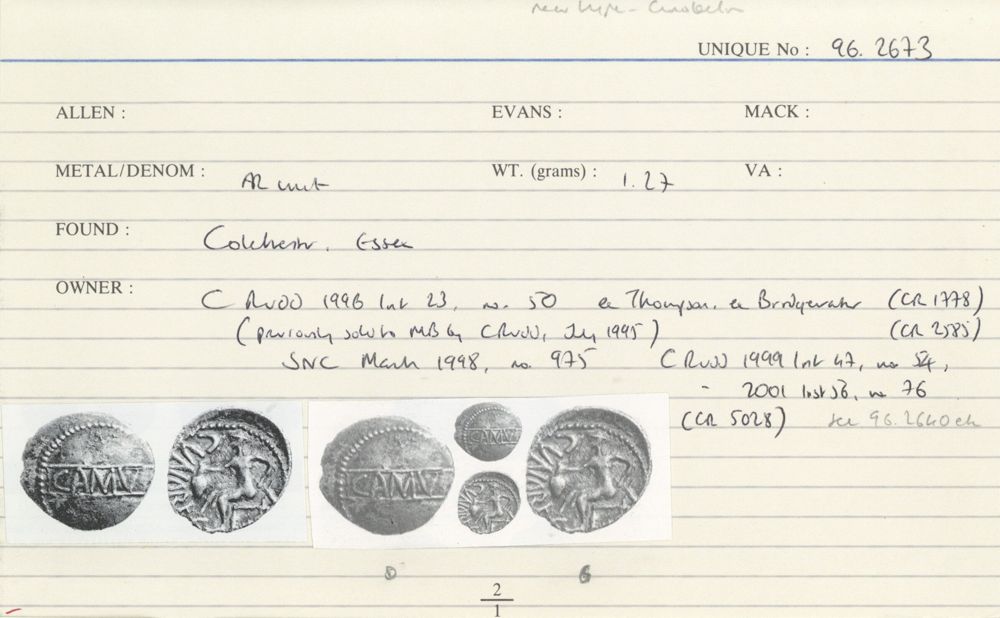 new type - Cunobelin
UNIQUE No : 96. 2673
ALLEN : EVANS : MACK :
METAL/DENOM : AR unit WT. (grams) : 1.27 VA :
FOUND : Colchester, Essex
OWNER : C Rudd 1996 list 23, no. 50 ex Thompson, ex Bridgewater (CR 1778)
(previously sold to MB by C Rudd, July 1995) (CR 2585)
SNC March 1998, no. 975 C Rudd 1999 list 47, no 54,
" 2001 list 56, no 76
(CR 5028) see 96.2640 etc
CAMV CAMV CAMV
2
1